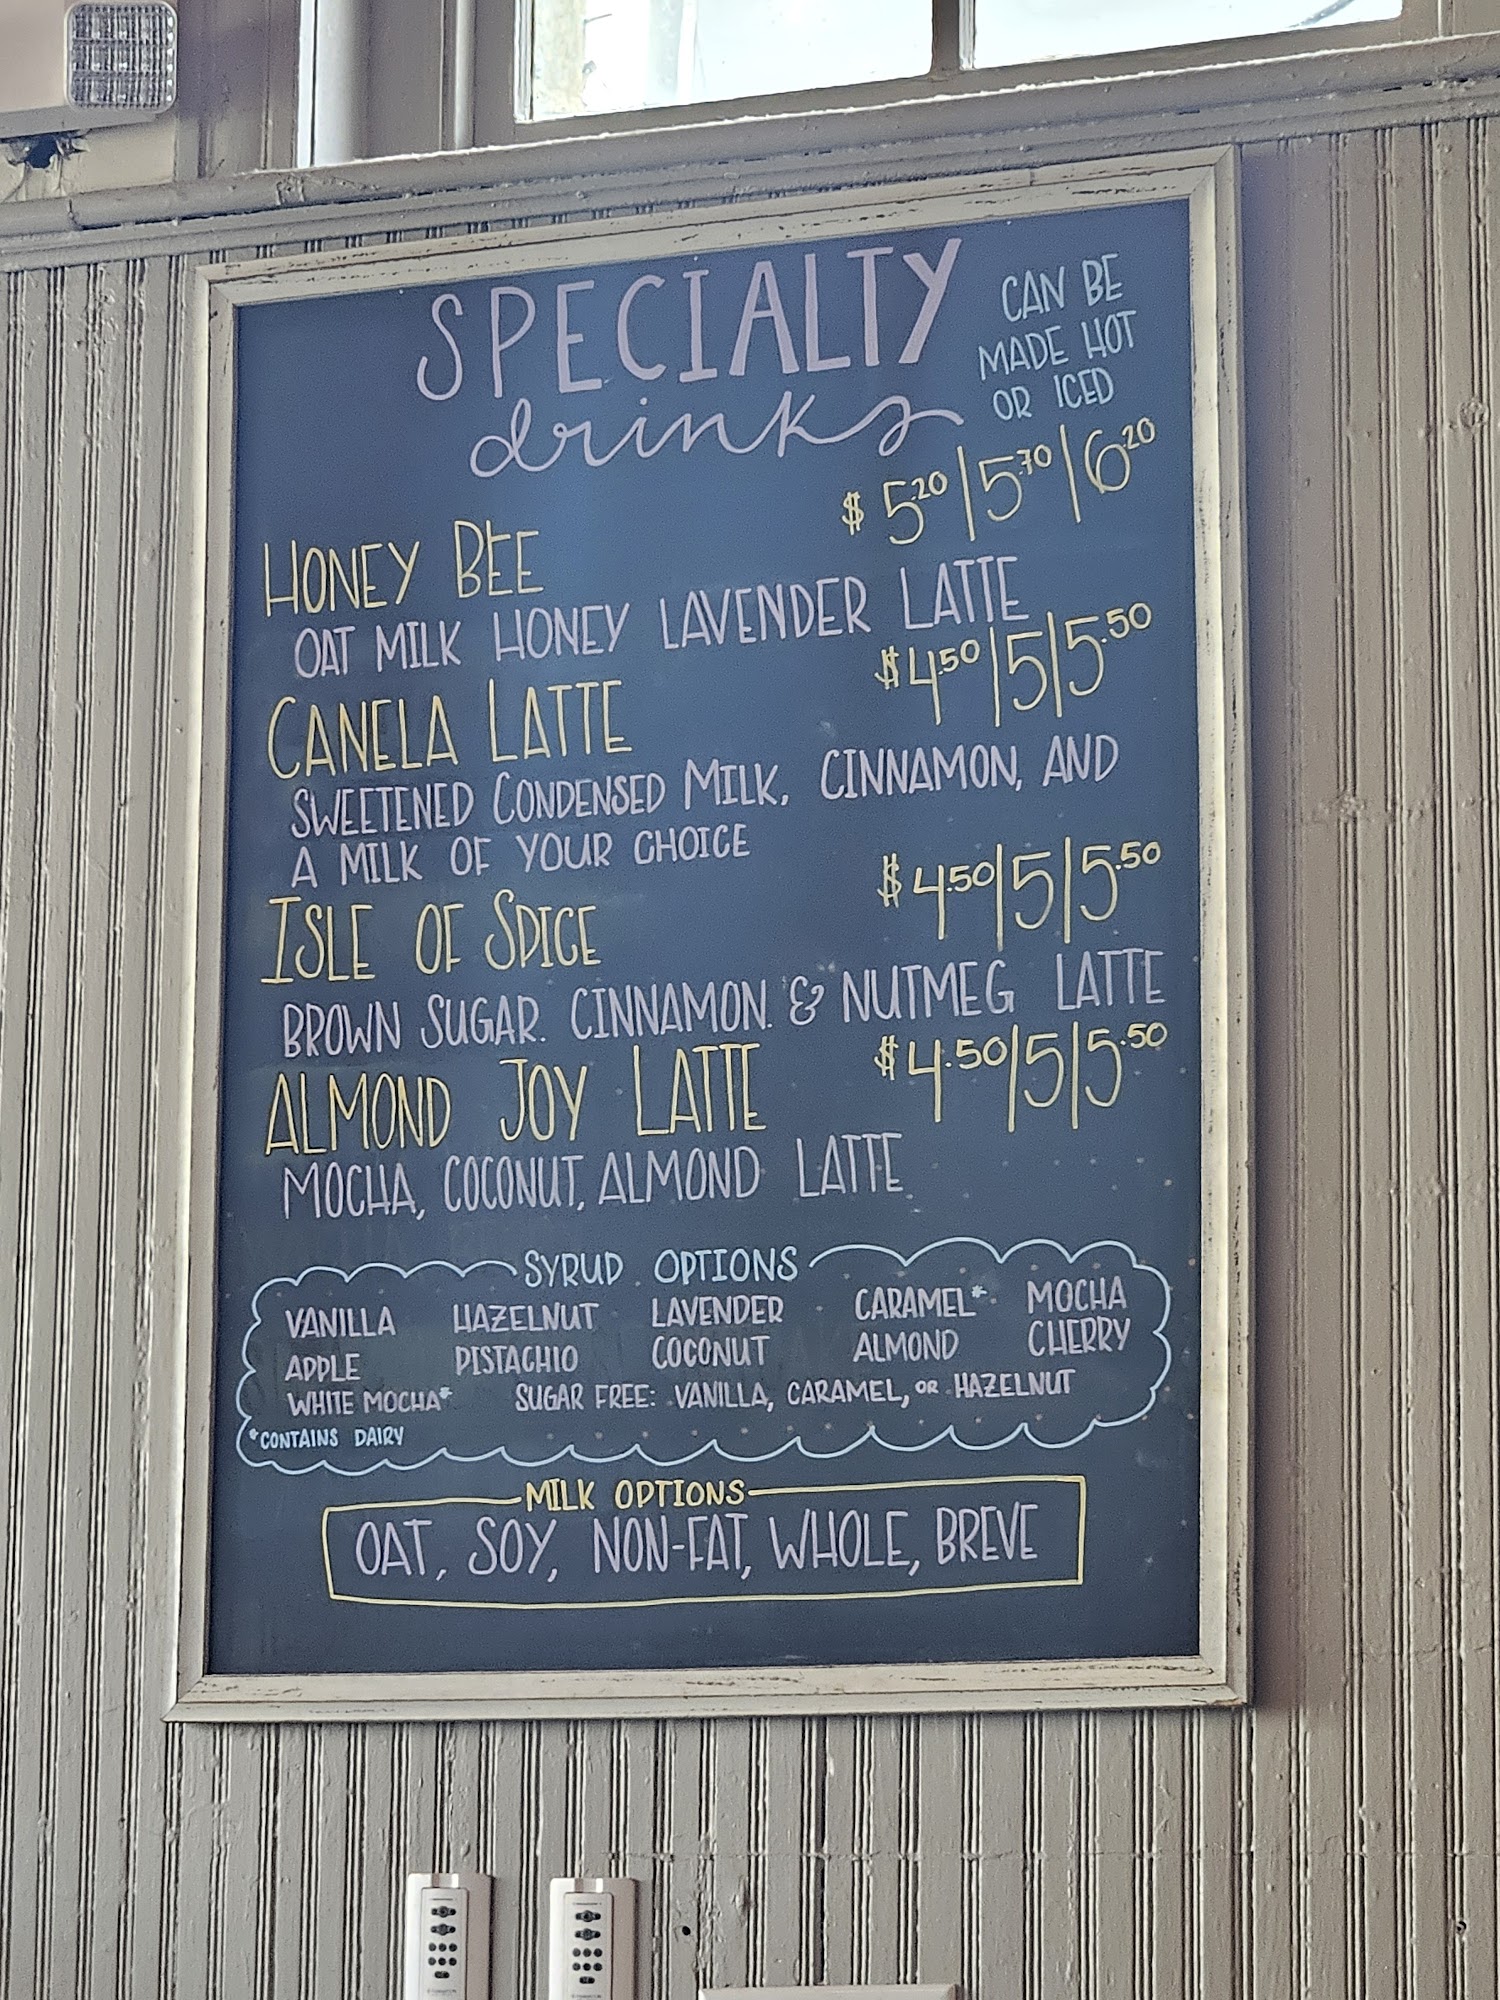 SPECIALTY
drinks
CAN BE
MADE HOT
OR ICED
HONEY BEE $5.20|5.70|6.20
OAT MILK HONEY LAVENDER LATTE
CANELA LATTE $4.50|5|5.50
SWEETENED CONDENSED MILK, CINNAMON, AND
A MILK OF YOUR CHOICE
ISLE OF SPICE $4.50|5|5.50
BROWN SUGAR. CINNAMON. & NUTMEG LATTE
ALMOND JOY LATTE $4.50|5|5.50
MOCHA, COCONUT, ALMOND LATTE
SYRUP OPTIONS
VANILLA HAZELNUT LAVENDER CARAMEL* MOCHA
APPLE PISTACHIO COCONUT ALMOND CHERRY
WHITE MOCHA* SUGAR FREE: VANILLA, CARAMEL, OR HAZELNUT
*CONTAINS DAIRY
MILK OPTIONS
OAT, SOY, NON-FAT, WHOLE, BREVE